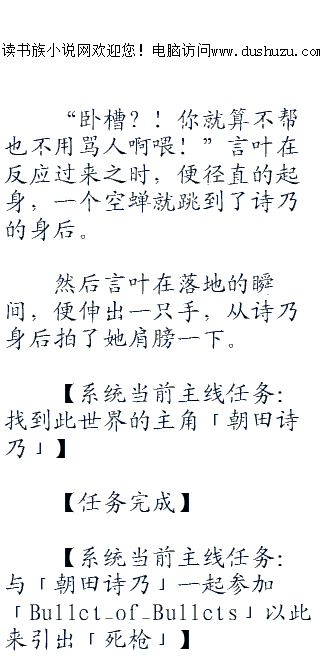 读书族小说网欢迎您！电脑访问www.dushuzu.com
“卧槽？！你就算不帮
也不用骂人啊喂！”言叶在
反应过来之时，便径直的起
身，一个空蝉就跳到了诗乃
的身后。
然后言叶在落地的瞬
间，便伸出一只手，从诗乃
身后拍了她肩膀一下。
【系统当前主线任务：
找到此世界的主角「朝田诗
乃」】
【任务完成】
【系统当前主线任务：
与「朝田诗乃」一起参加
「Bullct_of_Bullcts」以此
来引出「死枪」】